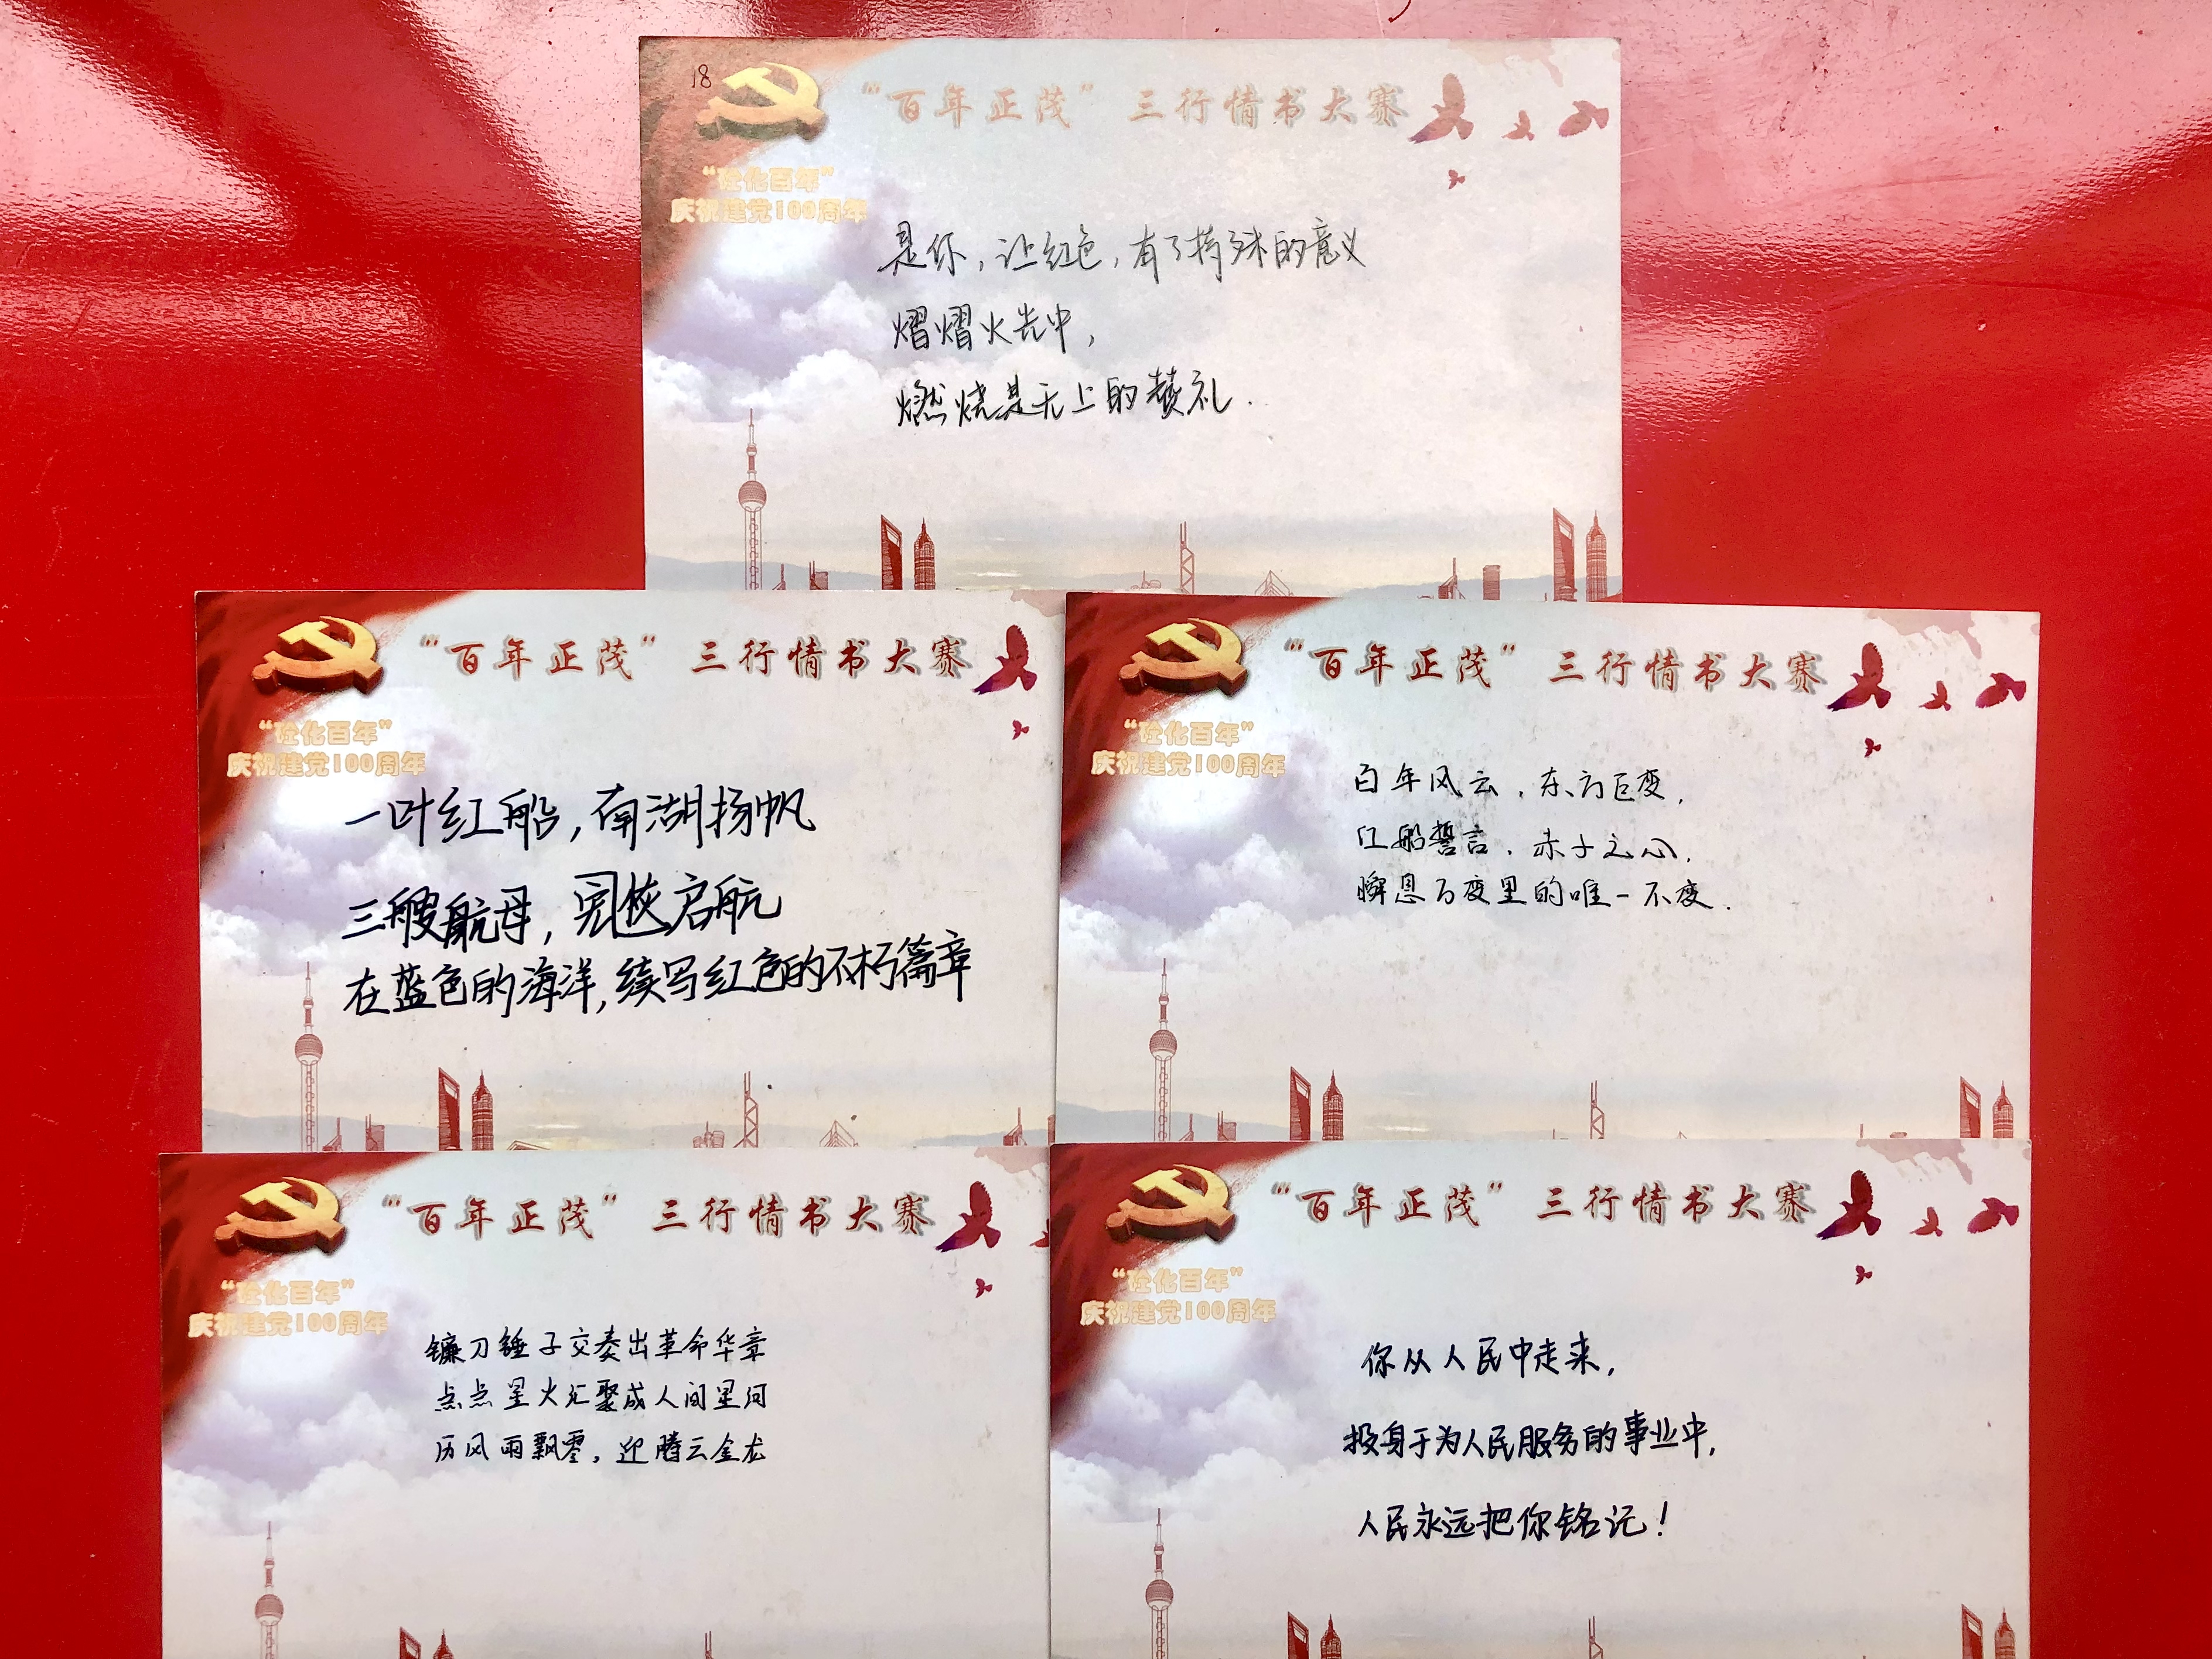 18
“百年正茂”三行情书大赛
“砼化百年”
庆祝建党100周年
是你，让红色，有了特殊的意义
熠熠火光中，
燃烧是无上的赞礼.
“百年正茂”三行情书大赛
“砼化百年”
庆祝建党100周年
一叶红船,南湖扬帆
三艘航母,启航
在蓝色的海洋,续写红色的不朽篇章
“百年正茂”三行情书大赛
“砼化百年”
庆祝建党100周年
百年风云，东方巨变，
红船誓言，赤子之心，
瞬息万变里的唯一不变.
“百年正茂”三行情书大赛
“砼化百年”
庆祝建党100周年
镰刀锤子交奏出革命华章
点点星火汇聚成人间星河
历风雨飘零，迎腾云金龙
“百年正茂”三行情书大赛
“砼化百年”
庆祝建党100周年
你从人民中走来，
投身于为人民服务的事业中，
人民永远把你铭记！